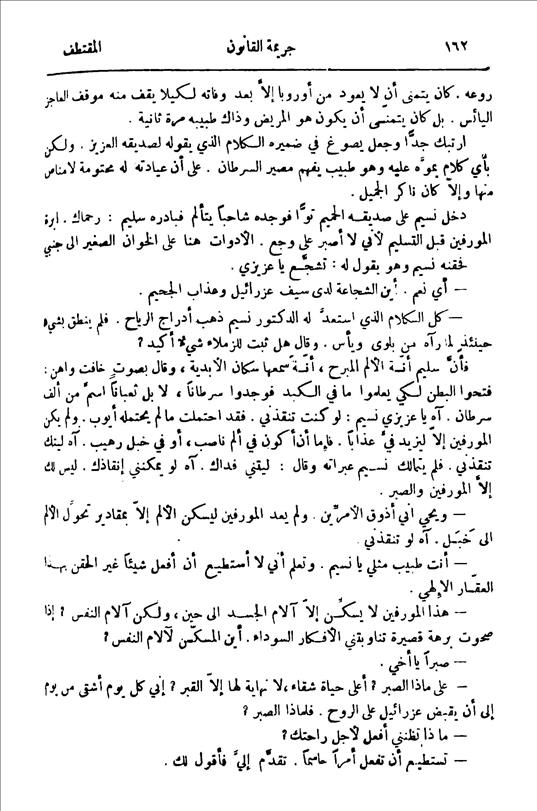 ١٦٢ جريمة القانون المقتطف
روعه . كان يتمنى أن لا يعود من أوروبا إلاَّ بعد وفاته لكيلا يقف منه موقف العاجز
اليائس . بل كان يتمنَّى أن يكون هو المريض وذاك طبيبه مرة ثانية .
ارتبك جدًّا وجعل يصوغ في ضميره الكلام الذي يقوله لصديقه العزيز . ولكن
بأي كلام يموَّه عليه وهو طبيب يفهم مصير السرطان . على أن عيادته له محتومة لامناص
منها وإلاَّ كان ناكر الجميل .
دخل نسيم على صديقه الحميم توًّا فوجده شاحباً يتألم فبادره سليم : رحماك . ابرة
المورفين قبل التسليم لأني لا أصبر على وجع . الأدوات هنا على الخوان الصغير الى جنبي
فحقنه نسيم وهو يقول له : تشجَّع يا عزيزي .
— أي نعم . أين الشجاعة لدى سيف عزرائيل وعذاب الجحيم .
— كل الكلام الذي استعدَّ له الدكتور نسيم ذهب أدراج الرياح . فلم ينطق بشيء
حينئذٍ لما رآه من بلوى ويأس . وقال هل ثبت للزملاء شيءٌ أكيد ؟
فأنَّ سليم أنَّة الألم المبرح ، أنَّة سمعها سكان الأبدية ، وقال بصوت خافت واهن :
فتحوا البطن لكي يعلموا ما في الكبد فوجدوا سرطاناً ، لا بل ثعباناً اسمَّ من ألف
سرطان . آه يا عزيزي نسيم : لو كنت تنقذني . فقد احتملت ما لم يحتمله أيوب . ولم يكن
المورفين إلاَّ ليزيد فيَّ عذاباً . فإما أن أكون في ألم ناصب ، أو في خبل رهيب . آه ليتك
تنقذني . فلم يتمالك نسيم عبراته وقال : ليتني فداك . آه لو يمكنني إنقاذك . ليس لك
إلاَّ المورفين والصبر .
— ويحي اني أذوق الأمرَّين . ولم يعد المورفين ليسكن الألم إلاَّ بمقادير تحوِّل الألم
الى خَبَل . آه لو تنقذني
— أنت طبيب مثلي يا نسيم . وتعلم أني لا أستطيع أن أفعل شيئاً غير الحقن بهذا
العقَّار الإلهي .
— هذا المورفين لا يسكِّن إلاَّ آلام الجسد الى حين ، ولكن آلام النفس ؟ إذا
صحوت برهة قصيرة تناوبتني الأفكار السوداء . أين المسكّن لآلام النفس ؟
— صبراً يا أخي .
— على ماذا الصبر ؟ أعلى حياة شقاء ، لا نهاية لها إلاَّ القبر ؟ إني كل يوم أشقى من يوم
إلى أن يقبض عزرائيل على الروح . فلماذا الصبر ؟
— ما ذا تظنني أفعل لأجل راحتك ؟
— تستطيع أن تفعل أمراً حاسماً . تقدَّم إليَّ فأقول لك .